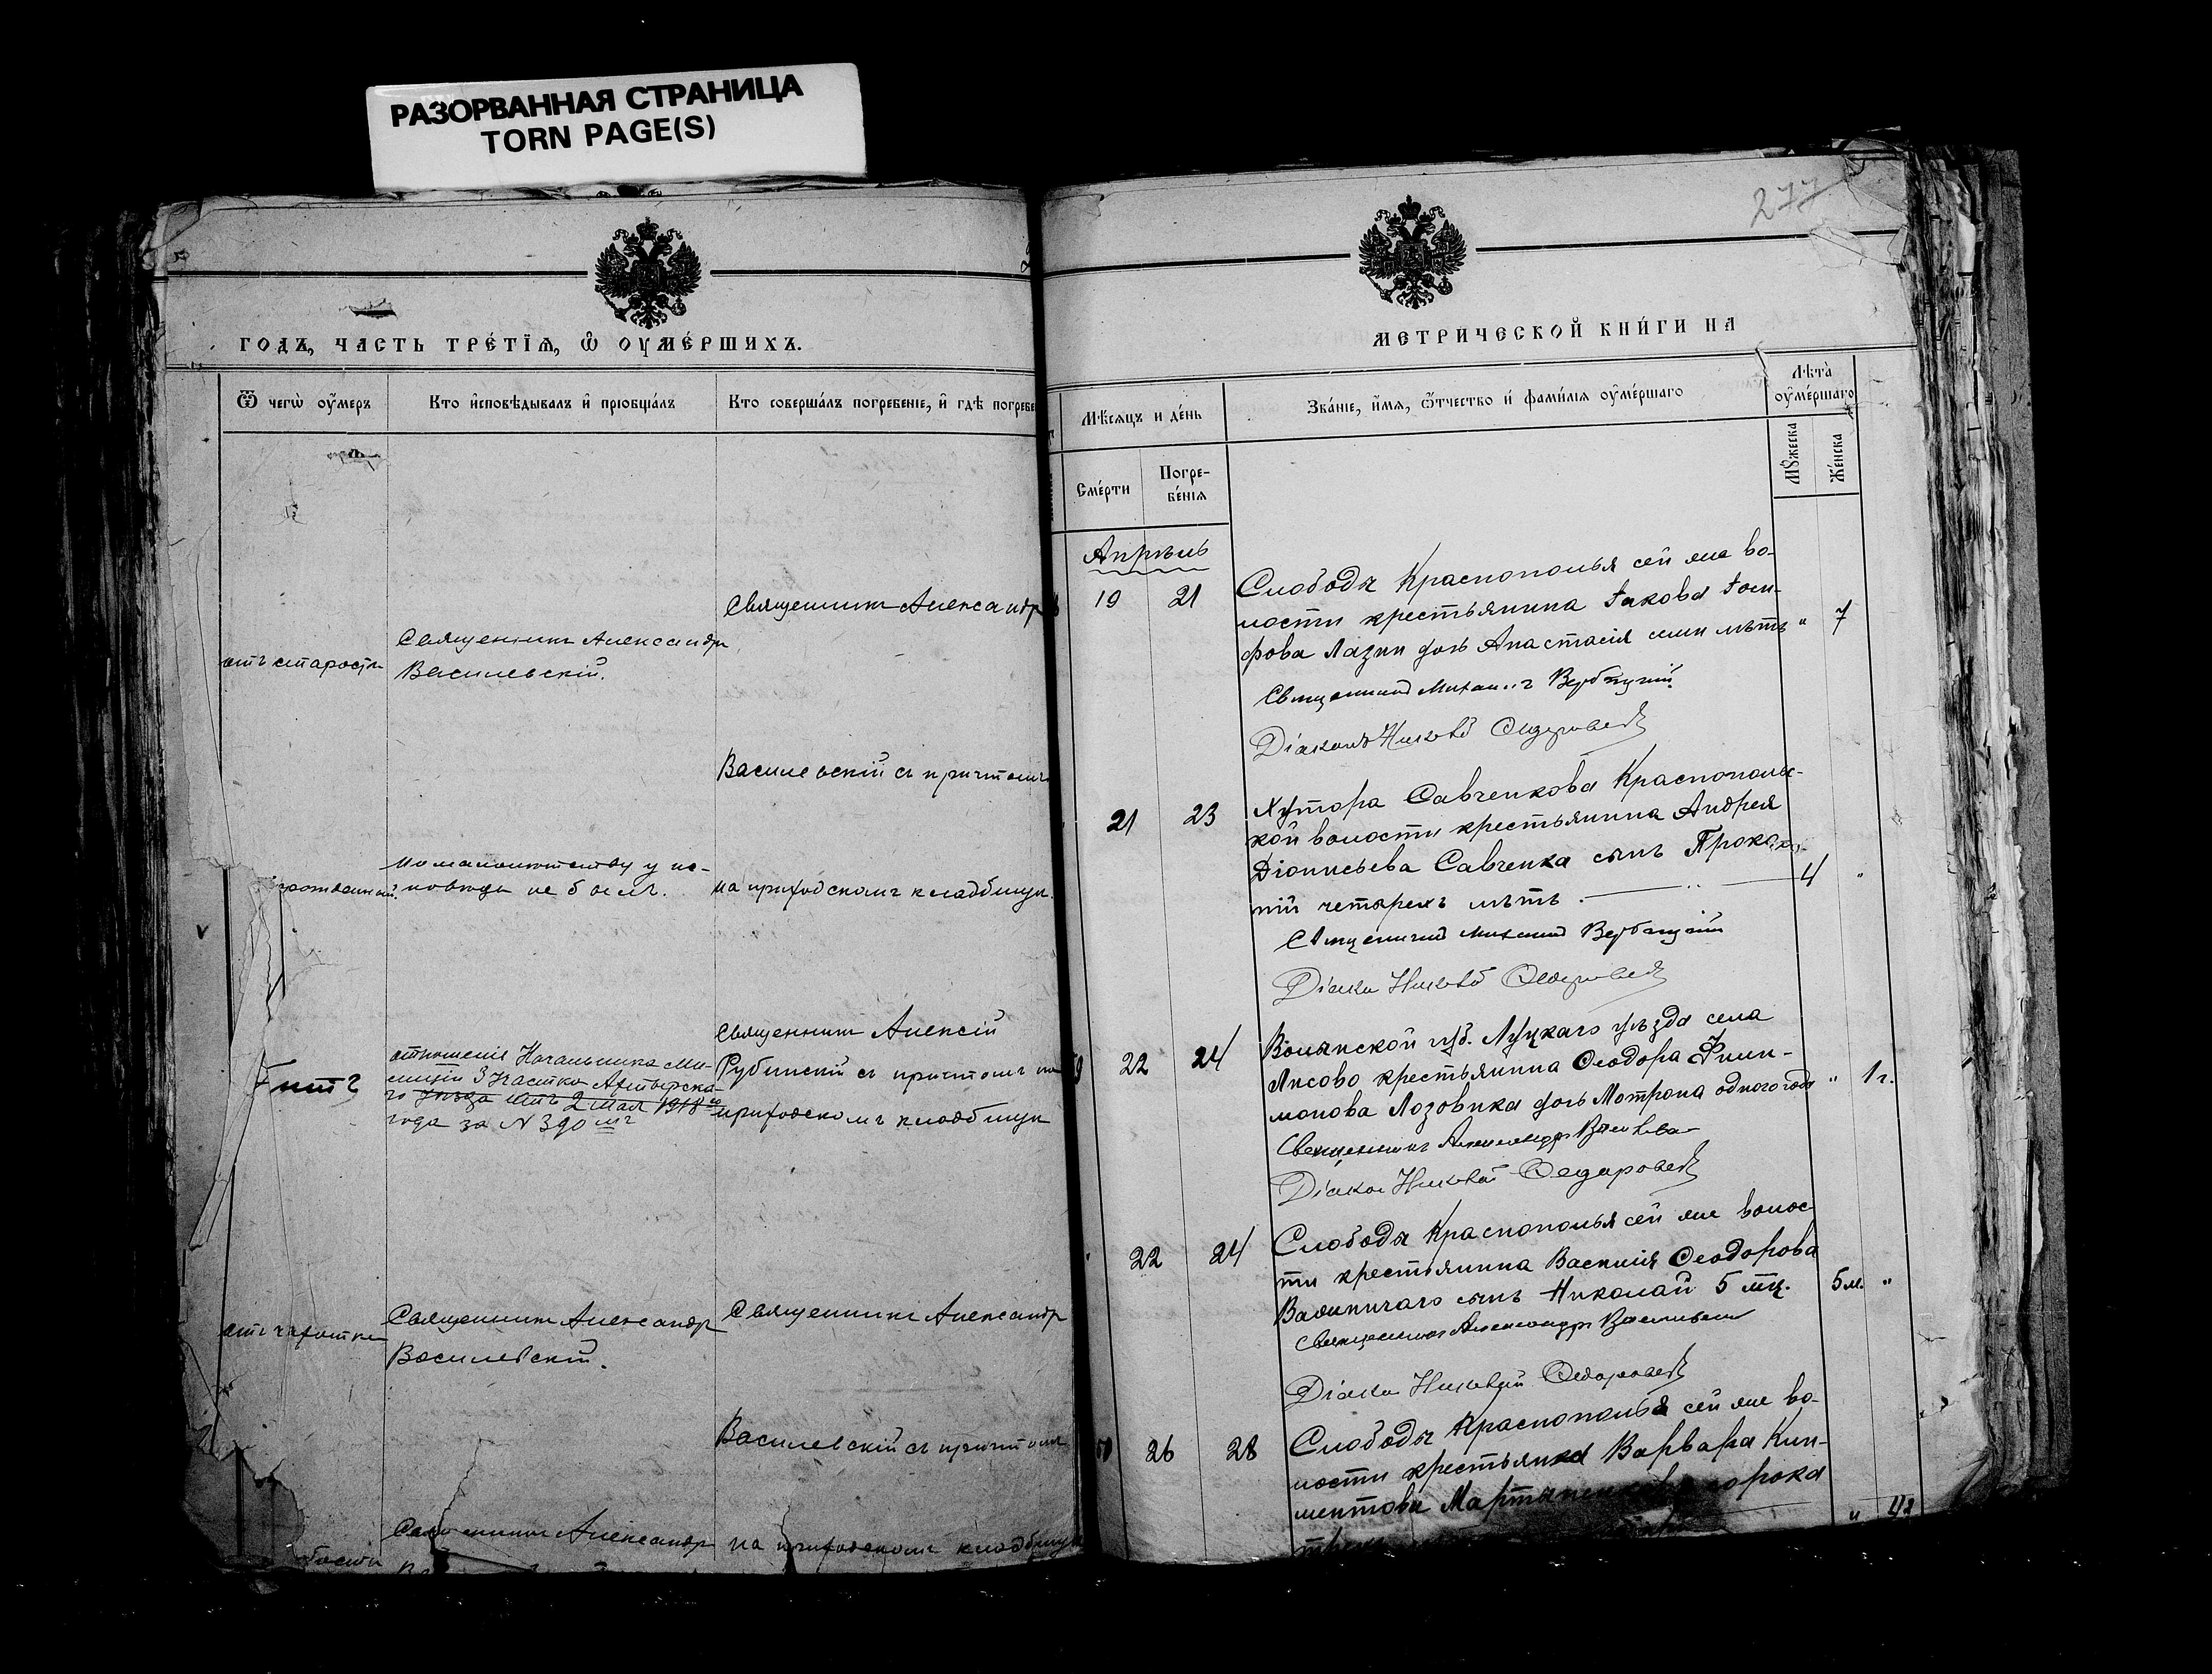 РАЗОРВАННАЯ СТРАНИЦА
TORN PAGE(S)
ГОДЪ, ЧАСТЬ ТРЕ́ТІѦ, Ѡ҆ ОУ҆МЕ́РШИХЪ.
Ѿ чегѡ̀ оу҆́меръ
Кто и҆сповѣ́дывалъ и҆ прїобща́лъ
Кто соверша́лъ погребе́нїе, и҆ гдѣ̀ погребе
Священникъ Александръ
Священникъ Александръ
отъ старости
Василевскій.
Василевскій съ причтомъ
по малолѣтству у
не былъ.
на приходскомъ кладбищѣ.
Священникъ Алексій
отношенія Начальника Ми-
лиціи 3 участка Ахтырска-
го уѣзда отъ 2 мая 1918 го
года за N 390 мъ
Рубинскій съ причтомъ на
приходскомъ кладбищѣ
Священникъ Александръ
Священникъ Александръ
отъ чахотки
Василевскій.
Василевскій съ причтомъ
Священникъ Александръ
на приходскомъ кладбищѣ
277
МЕТРИЧЕСКОЙ КНИ́ГИ НА
Мѣ́сѧцъ и де́нь
Зва́нїе, и҆́мѧ, ѻ҆́тчество и҆ фами́лїѧ оу҆ме́ршагѡ
Лѣ́та оу҆ме́ршагѡ
Сме́рти
Погре-
бе́нїѧ
Мꙋ́жеска
Же́нска
Апрѣль
19 21 Слободы Краснополья сей же во-
лости крестьянина Іакова Іоси-
фова Лазни дочь Анастасія семи лѣтъ " 7
Священникъ Михаилъ Вербицкій
Діаконъ Николай Ѳедоровскій
21 23 Хутора Савченкова Краснопольс-
кой волости крестьянина Андрея
Діонисьева Савченка сынъ Проко-
пій четырехъ лѣтъ. 4 "
Священникъ Михаилъ Вербицкій
Діаконъ Николай Ѳедоровскій
22 24 Волынской губ. Луцкаго уѣзда села
Лисово крестьянина Ѳеодора Фили-
монова Лозовика дочь Мотрона одного года " 1 г.
Священникъ Александръ Василевскій
Діаконъ Николай Ѳедоровскій
22 24 Слободы Краснополья сей же волос-
ти крестьянина Василія Ѳеодорова
сынъ Николай 5 мц. 5 м. "
Священникъ Александръ Василевскій
Діаконъ Николай Ѳедоровскій
26 28 Слободы Краснополья сей же во-
лости крестьянка Варвара Кли-
ментова сорока